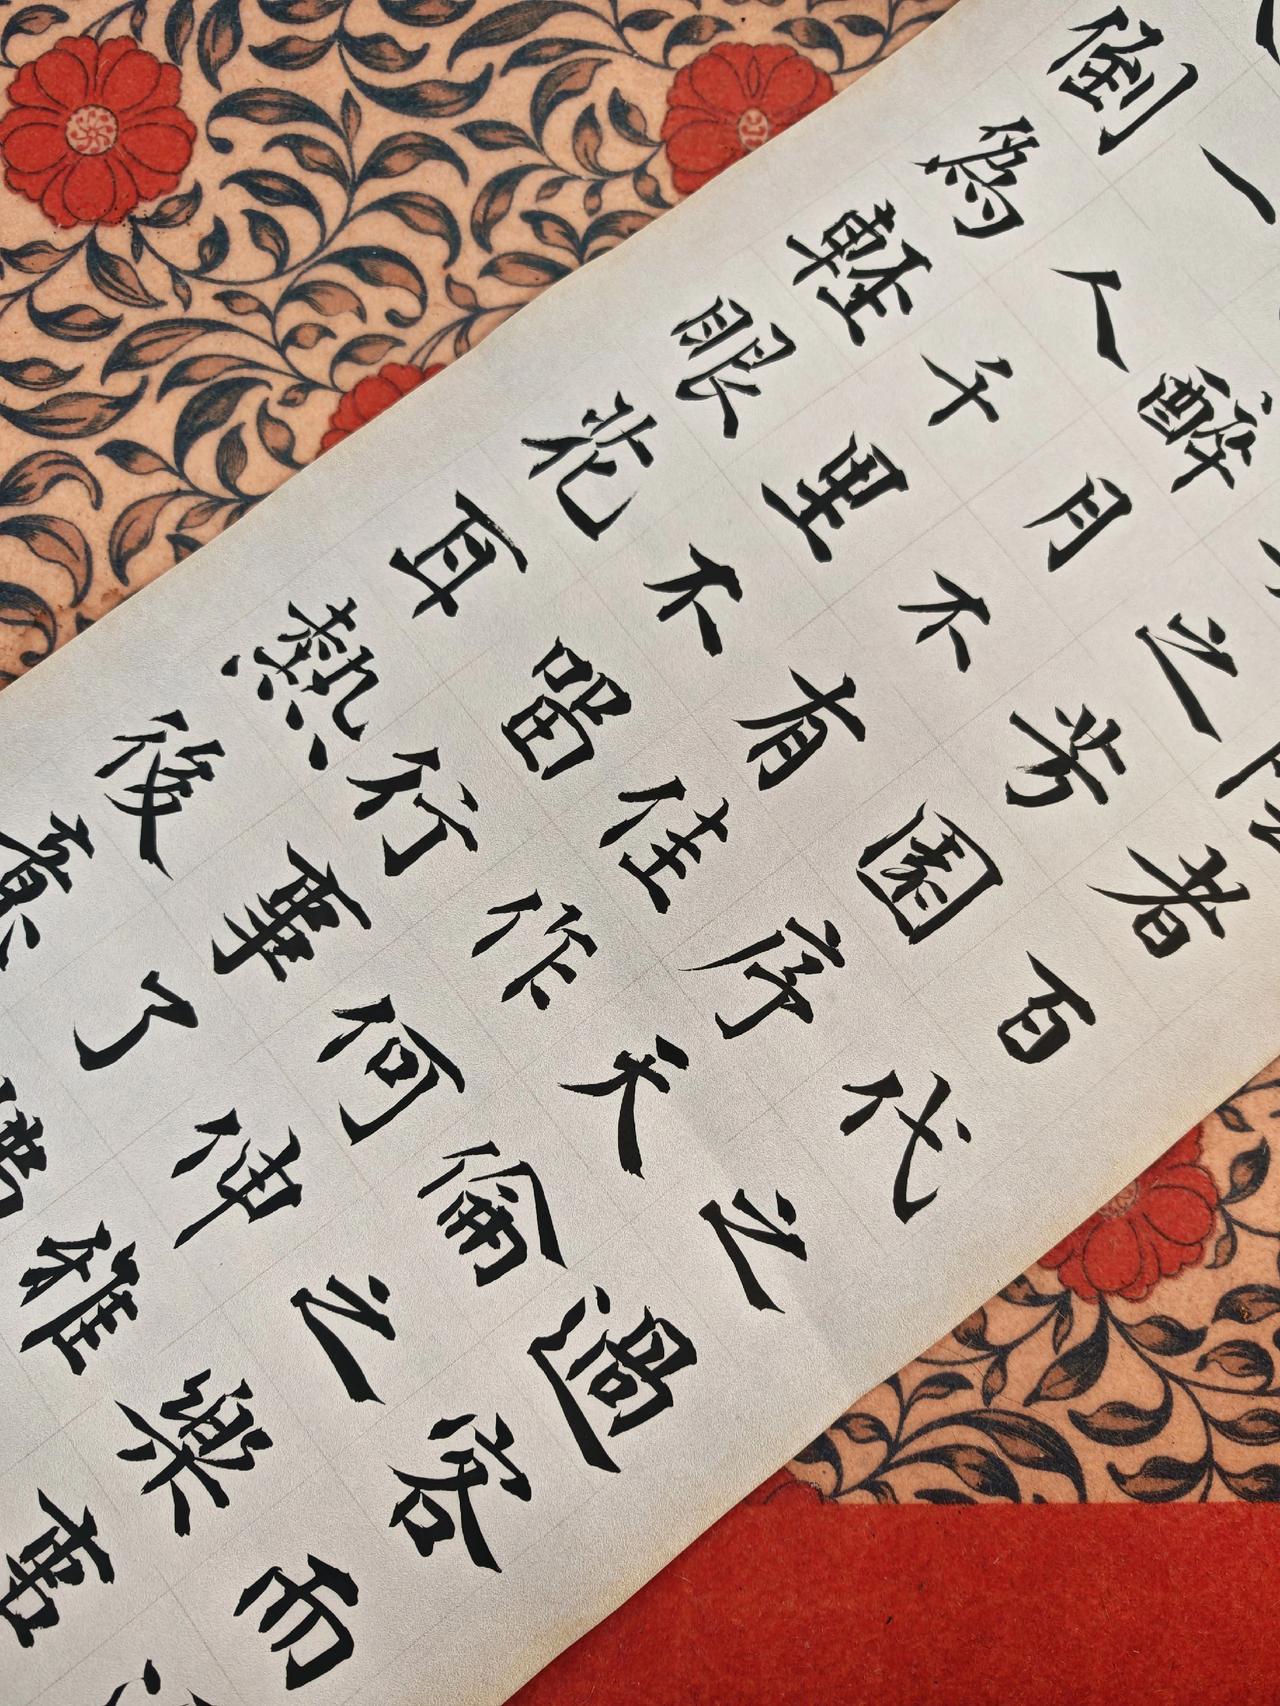 陰者百代之過客而
之芳園序天倫之樂
醉月不有佳作何伸雅
一人千里不留行事了
倒為輕眼花耳熱後意